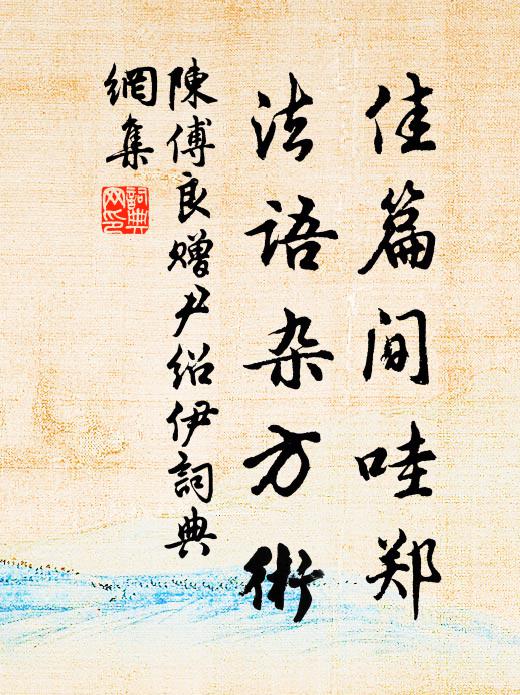 佳篇间哇郑
法语杂方術
陳傅良贈尹绍伊詞典
網集
詞典網印